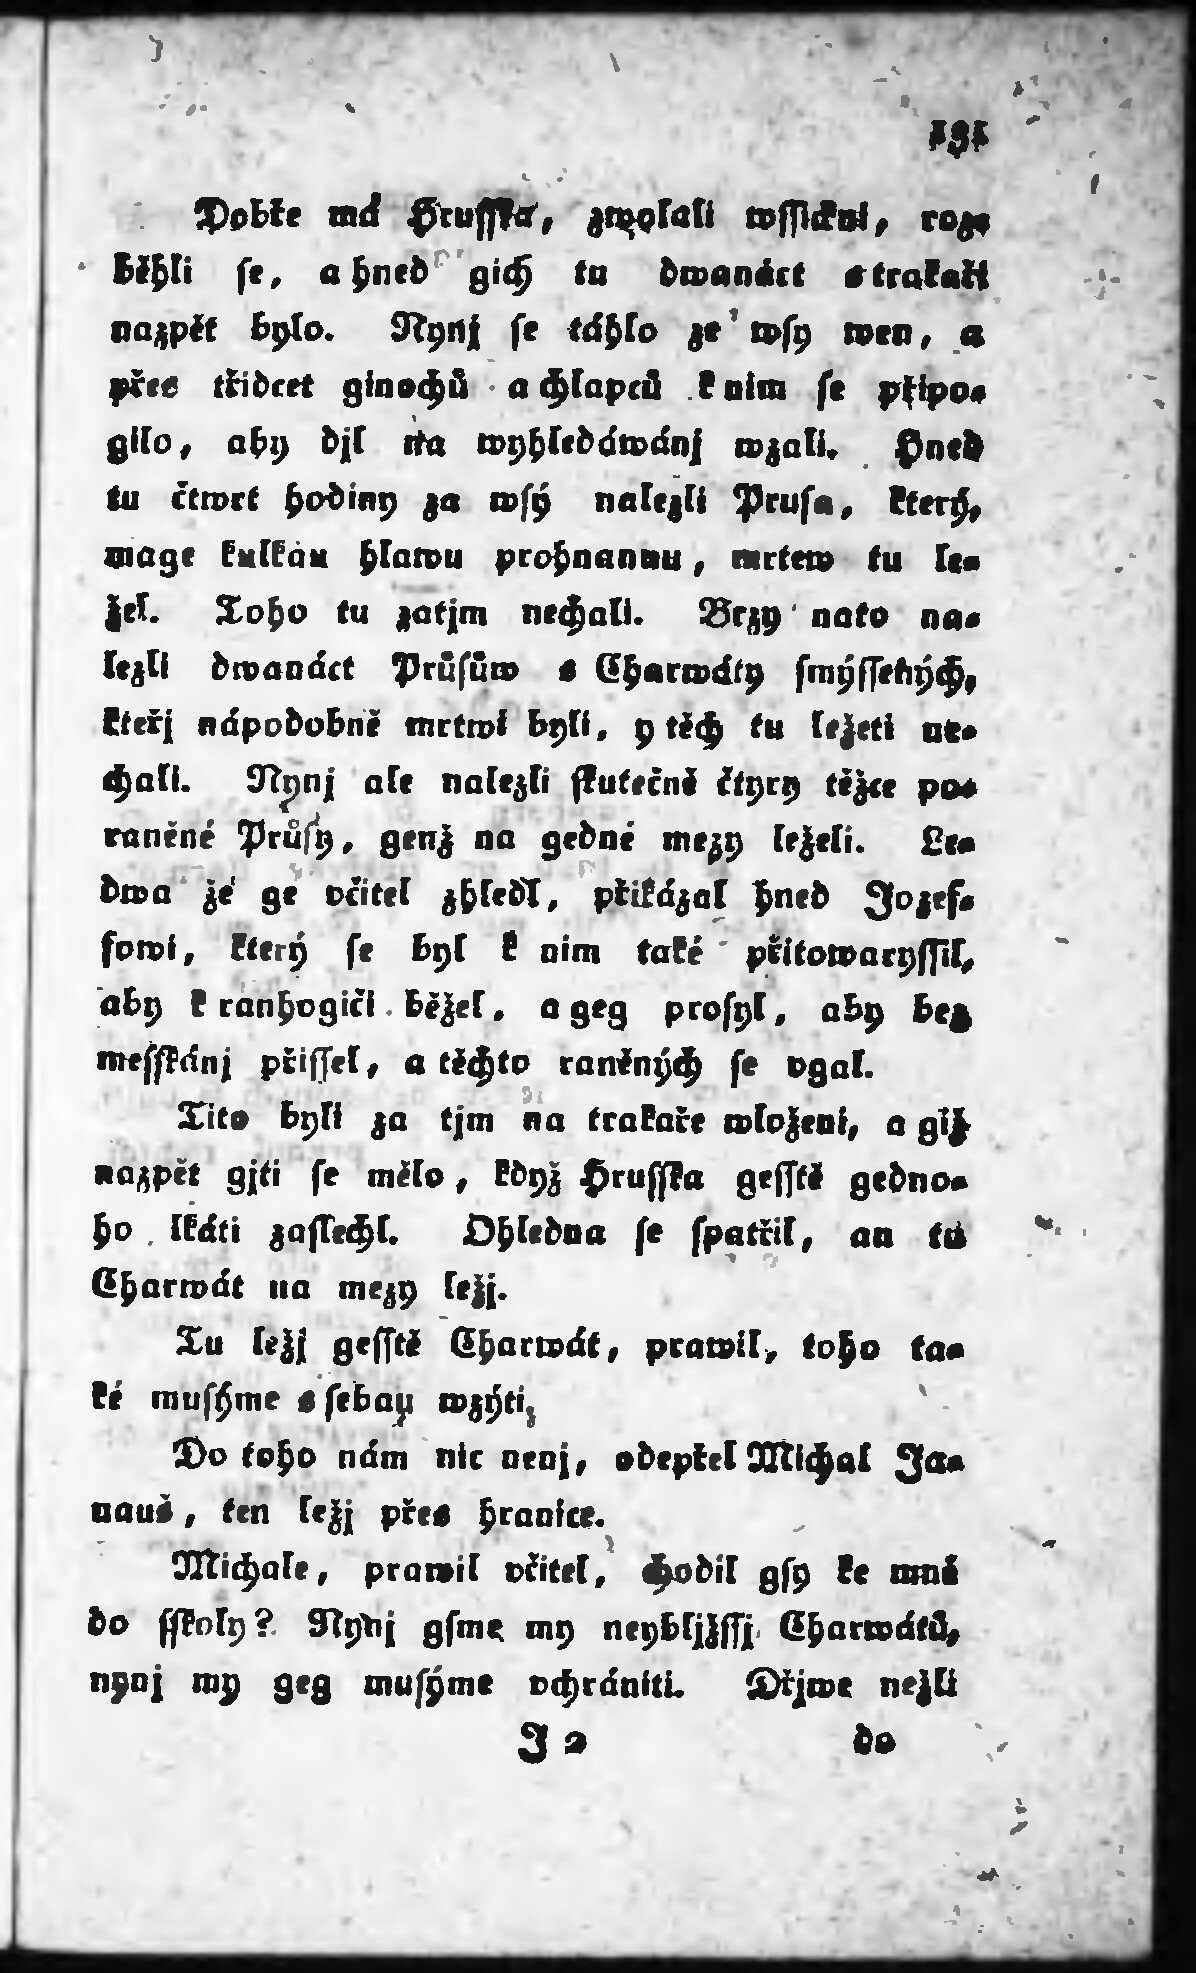 131
Dobře má Hrusska, zwolali wssickni, roz-
běhli se, a hned gich tu dwanáct s trakaři
nazpět bylo. Nynj se táhlo ze wsy wen, a
přes třidcet ginochů a chlapců k nim se připo-
gilo, aby djl na wyhledáwánj wzali. Hned
tu čtwrt hodiny za wsý nalezli Prusa, který,
mage kulkau hlawu prohnannu, mrtew tu le-
žel. Toho tu zatjm nechali. Brzy nato na-
lezli dwanáct Průsůw s Charwáty smýssených,
kteřj nápodobně mrtwi byli, y těch tu ležeti ne-
chali. Nynj ale nalezli skutečně čtyry těžce po-
raněné Průsy, genž na gedné mezy leželi. Le-
dwa že ge včitel zhledl, přikázal hned Jozef-
fowi, který se byl k nim také přitowaryssil,
aby k ranhogiči běžel, a geg prosyl, aby bez
messkánj přissel, a těchto raněných se vgal.
Tito byli za tjm na trakaře wloženi, a giž
nazpět gjti se mělo, když Hrusska gesstě gedno-
ho lkáti zaslechl. Ohledna se spatřil, an tu
Charwát na mezy ležj.
Tu ležj gesstě Charwát, prawil, toho ta-
ké musýme s sebau wzýti.
Do toho nám nic nenj, odepřel Michal Ja-
nauš, ten ležj přes hranice.
Michale, prawil včitel, chodil gsy ke mně
do sskoly? Nynj gsme my neybljžssj Charwátů,
nynj my geg musýme vchrániti. Dřjwe nežli
J 2 do